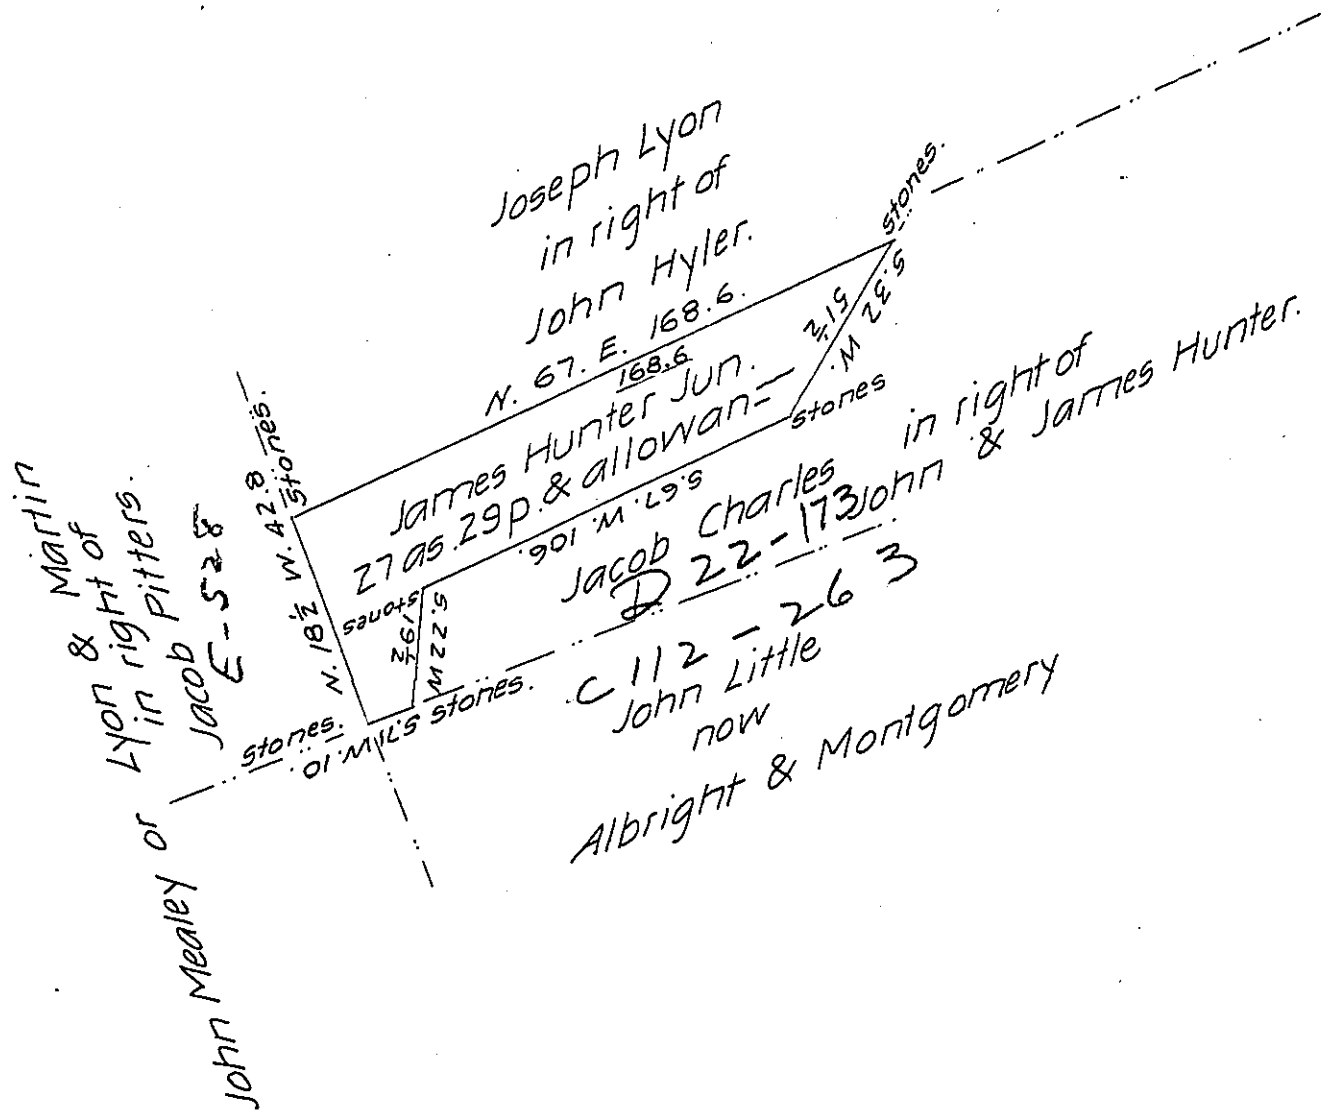 Joseph Lyon
in right of
John Hyler.
N. 67. E. 168.6.
168.6
stones.
S. 32 W.
51½
James Hunter Jun.
27 as. 29 p. & allowan=
stones
S. 67. W. 106.
stones
19½
S. 22 W
stones.
S. 71 W. 10.
stones.
N. 18½ W. 42.8
stones.
Martin
Lyon &
in right of
Jacob Pitters.
E-528
John Mealey or
Jacob Charles in right of
John & James Hunter.
D 22-173
C 112-263
John Little
now
Albright & Montgomery